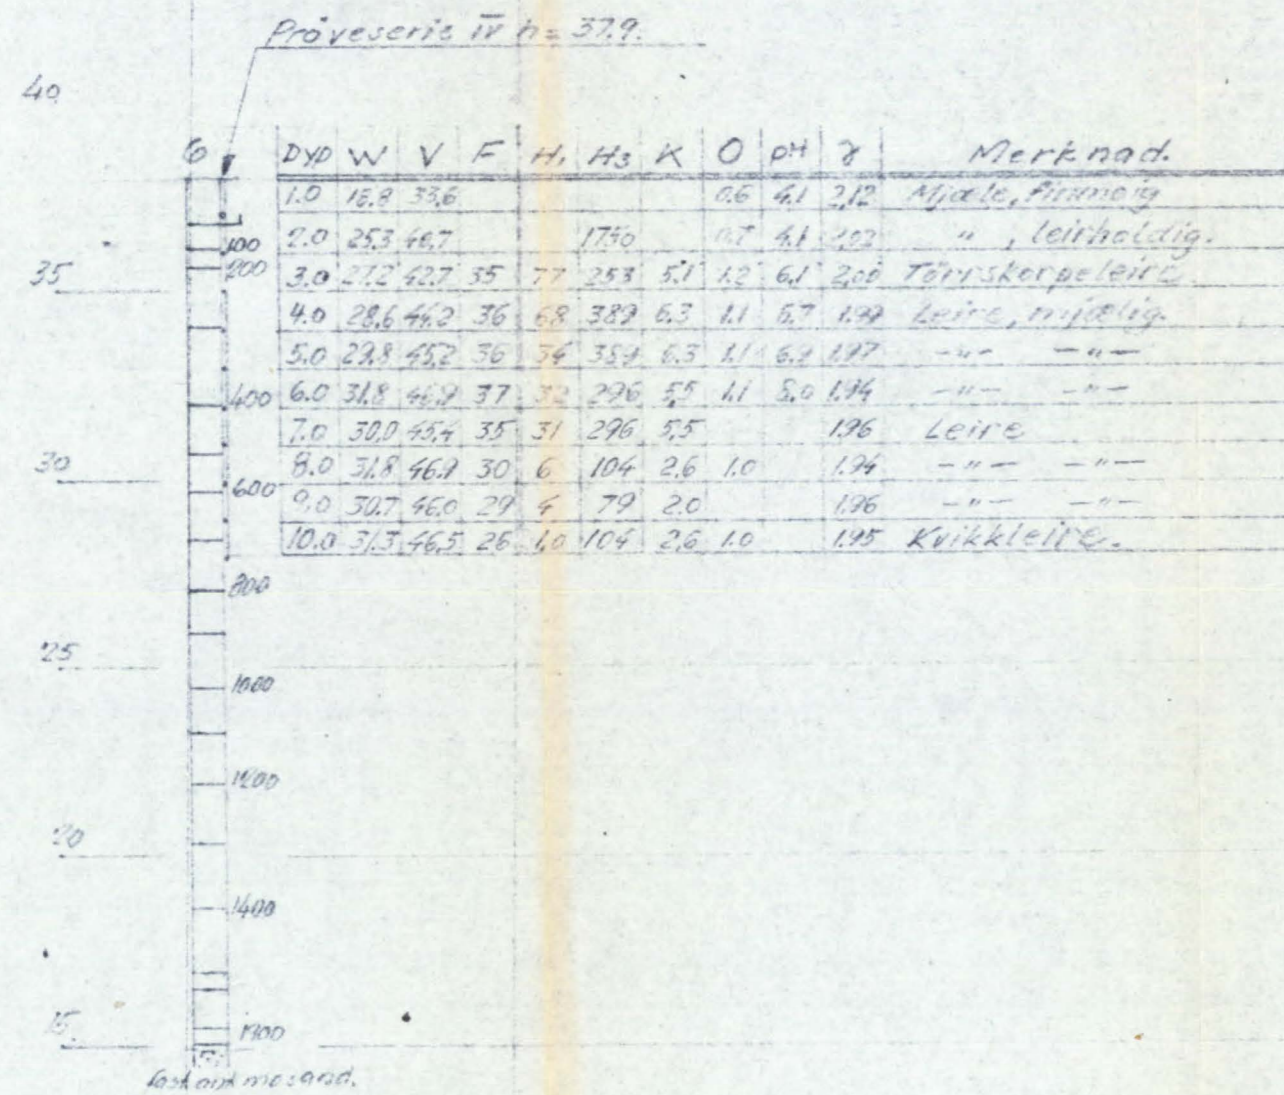 Prøveserie IV h = 37.9.
40
6 DYD W V F H₁ H₃ K O pH γ Merknad.
1.0 16.8 33,6 0.6 4.1 2,12 Mjæle, finmoig
100 2.0 25,3 40,7 1730 0.7 4.1 2,02 " , leirholdig.
35 200 3.0 27,2 42,7 35 77 253 5,1 1.2 6,1 2,00 Tørrskorpeleire.
4.0 28,6 44,2 36 68 389 6.3 1.1 6.7 1.99 Leire, mjælig.
5.0 29,8 45,2 36 34 389 6.3 1.1 6.9 1.97 -"- -"-
400 6.0 31,8 46,9 37 32 296 5,5 1.1 8.0 1.94 -"- -"-
7.0 30,0 45,4 35 31 296 5,5 1.96 Leire
30 8.0 31,8 46,9 30 6 104 2,6 1.0 1.94 -"- -"-
600 9.0 30,7 46,0 29 4 79 2.0 1.96 -"- -"-
10.0 31,3 46,5 26 1,0 104 2,6 1.0 1.95 Kvikkleire.
800
25
1000
1200
20
1400
15
fast ant mosand.